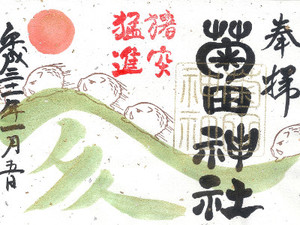 奉拝
菊田神社
猪突
猛進
亥
平成三十一年一月五日